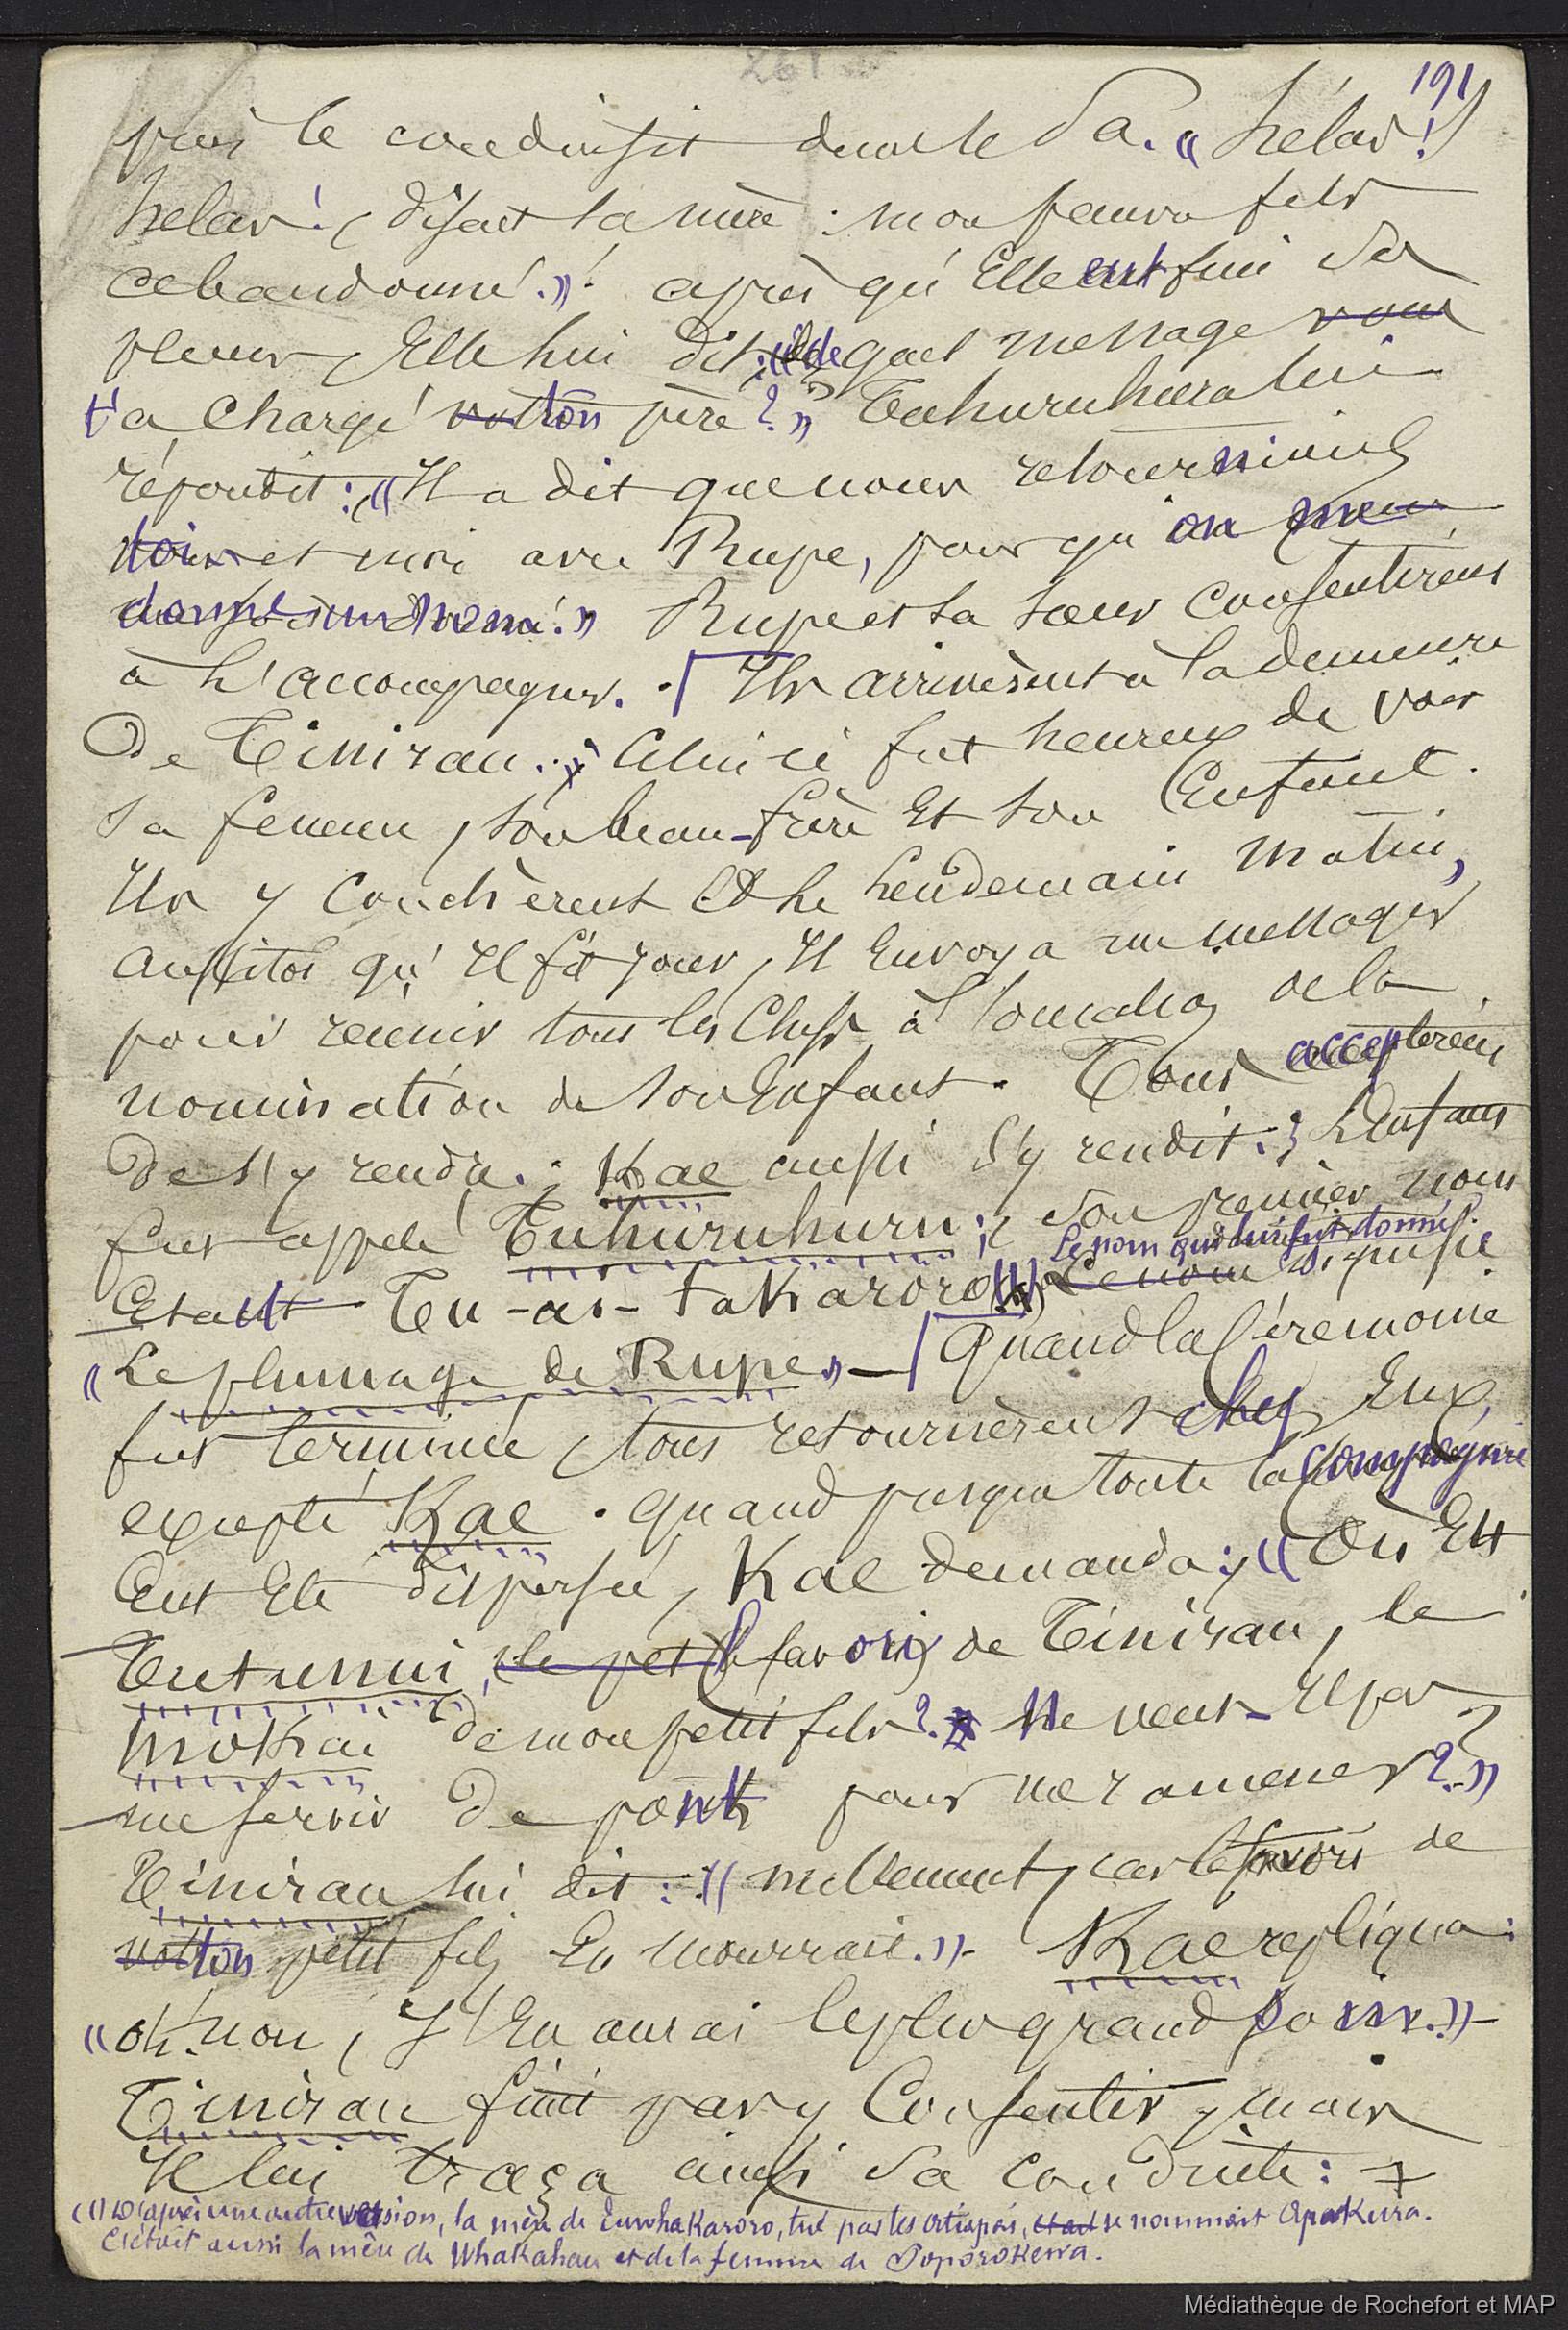 261
191
puis le conduisit dans le Pa. « hélas !
hélas ! disait la mère : mon pauvre fils
abandonné. » après qu'Elle eut fini ses
pleurs, Elle lui dit : « de quel message vous
t'a chargé votre ton père ? » Tuhuruhuru lui
répondit : « Il a dit que nous retournions
toi et moi avec Rupe, pour qu'on me
donne un nom. » Rupe et sa sœur consentirent
à l'accompagner. Ils arrivèrent à la demeure
de Tinirau. ; Celui ci fut heureux de voir
sa femme, son beau-frère Et son Enfant.
Ils y couchèrent Et le lendemain matin,
aussitôt qu'Il fit jour, Il Envoya un messager
pour réunir tous les Chefs à l'occasion de la
nomination de son Enfant. Tous acceptèrent
de s'y rendre. ; Kae aussi s'y rendit. ; L'Enfant
fut appelé Tuhuruhuru ; son premier nom
Le nom qui lui fut donné
Etait Tu-as-takaroro (1) Le nom signifie
« Le plumage de Rupe » — Quand la Cérémonie
fut terminée, tous retournèrent chez Eux,
excepté Kae. Quand presque toute la compagnie
Eut Eté dispersée, Kae demanda : « Où Est
Tutunui, le pet (le favori) de Tinirau, le
mokai de mon petit fils ? Ne veut-Il pas
me servir de pont pour me ramener ? »
Tinirau lui dit : « nullement, car le favori de
votre ton petit fils En mourrait. » - Kae repliqua :
« oh ! non, J'En aurai le plus grand soin. » -
Tinirau finit par y Consentir, mais
Il lui traça ainsi sa conduite : +
(1) D'après une autre version, la mère de Tuwhakaroro, tué par les Atiapai, était se nommait Apakura.
C'était aussi la mère de Whakahau et de la femme de Poporokewa.
Médiathèque de Rochefort et MAP